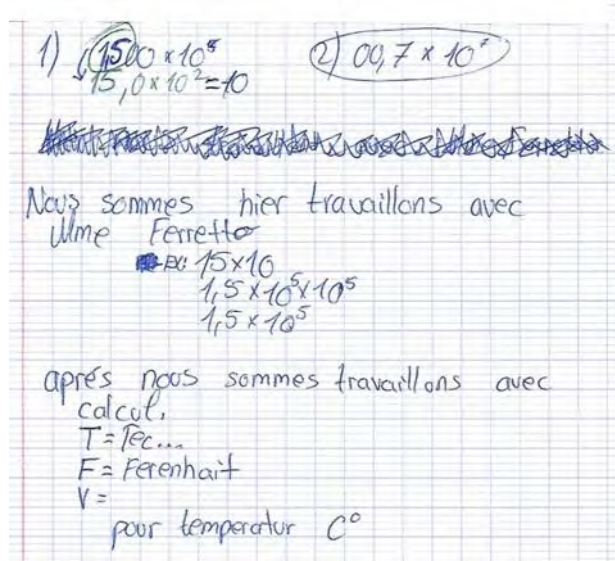 1) 1,500 x 10⁵ 2) 00,7 x 10⁷
15,0 x 10² = 10
Nous sommes hier travaillons avec
Mme Ferretto
15x10
1,5 x 10⁵ x 10⁵
1,5 x 10⁵
aprés nous sommes travaillons avec
calcul.
T = Tec...
F = Ferenhait
V =
pour temperatur C°